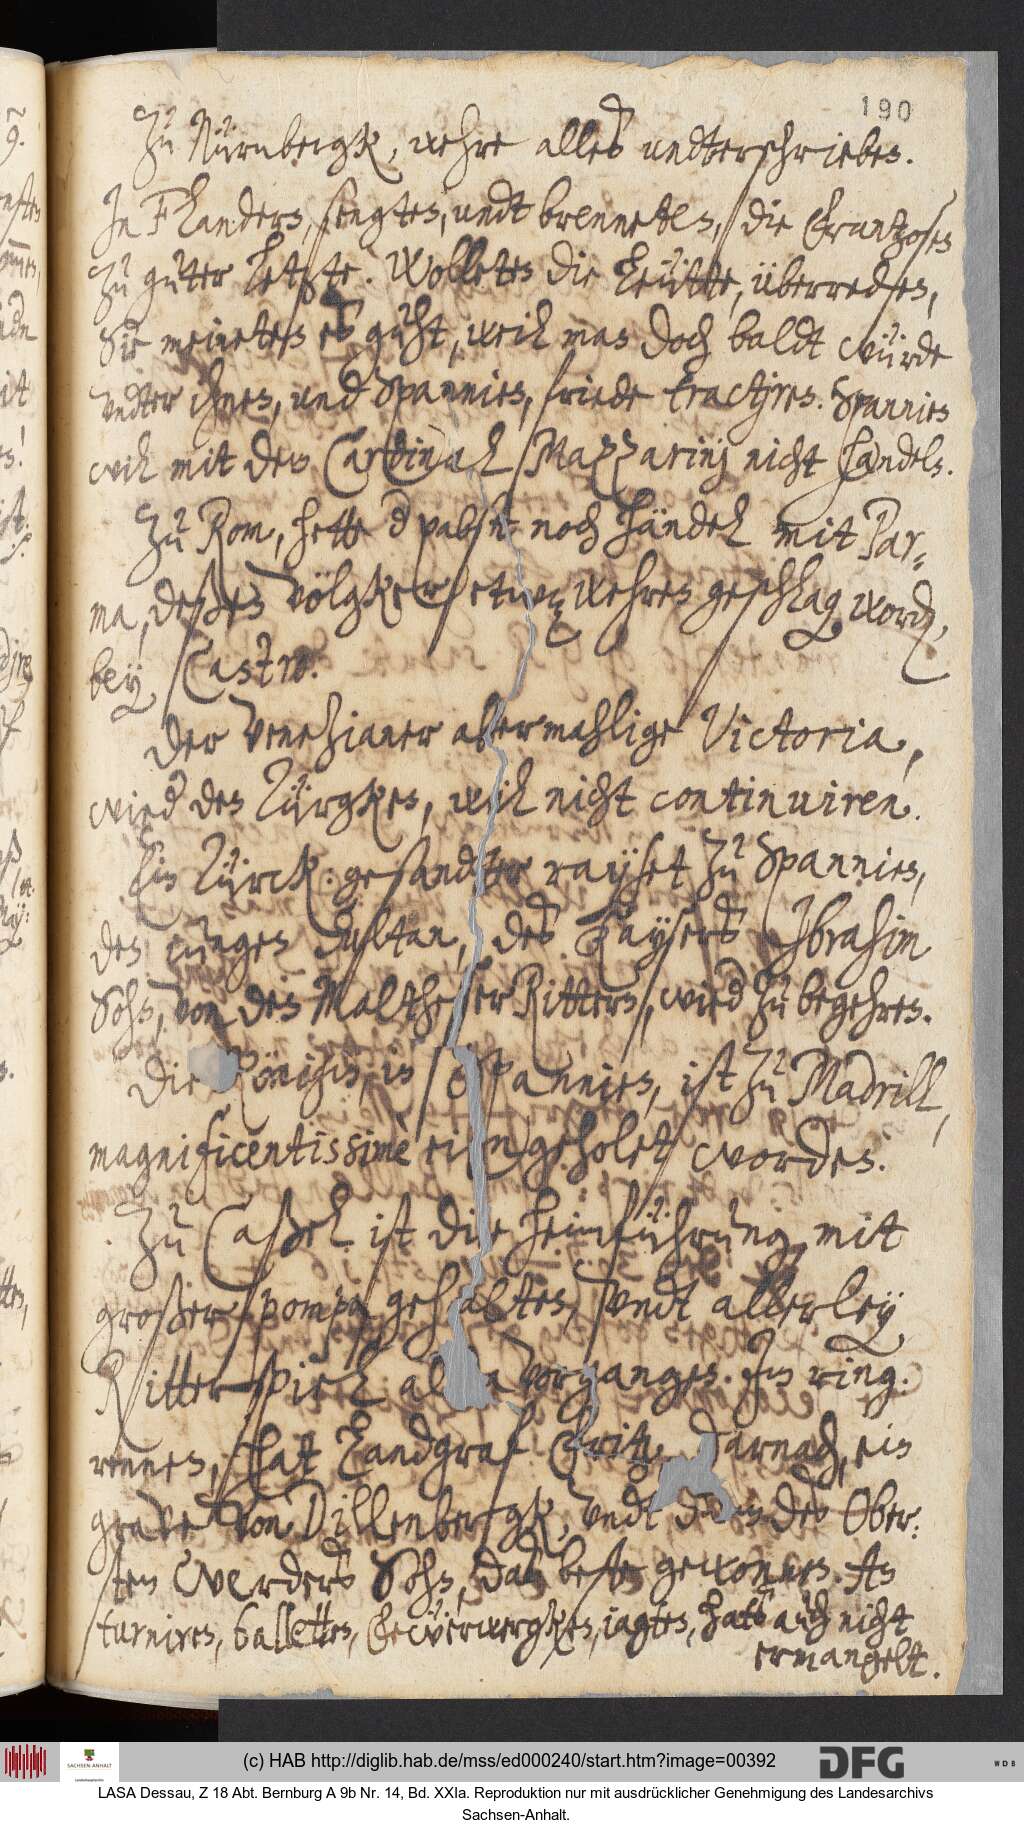 190
Zu Nürnbergk, wehre alles undterschrieben.
In Flandern, sengten, undt brenneten, die Frantzosen
zu guter letzte. Wolleten die leütte, überreden,
Sie meineten es guht, weil man doch baldt würde
undter ihnen, und Spannien, friede tractiren. Spannien
will mit dem Cardinal Mazzarinj nicht handeln.
Zu Rom, hette d pabst noch händel mit Par-
ma, deßen völgker etwan wehren geschlagen worden,
bey Castro.
Der Venezianer abermahlige Victoria,
wied den Türgken, will nicht continuiren.
Ein Türck: gesandter rayset zu Spannien,
den jungen Sultan, des Kaysers Ibrahim
Sohn, von den Maltheser Rittern, wied zu begehren.
Die Königin in Spannien, ist zu Madrill,
magnificentissimè eingeholet worden.
Zu Caßel ist die heimführung mit
großer pompa gehalten, undt allerley
Ritterspiel alda vorgangen. Im ring:
rennen, hat Landgraf Fritz, darnach, ein
grave von Dillenbergk, undt dann des Ober:
sten Werders Sohn, daß beste gewonnen. An
turniren, balletten, Fewerwergken, jagten, hats auch nicht
ermangelt.
(c) HAB http://diglib.hab.de/mss/ed000240/start.htm?image=00392
SACHSEN-ANHALT
DFG
WDB
LASA Dessau, Z 18 Abt. Bernburg A 9b Nr. 14, Bd. XXIa. Reproduktion nur mit ausdrücklicher Genehmigung des Landesarchivs
Sachsen-Anhalt.